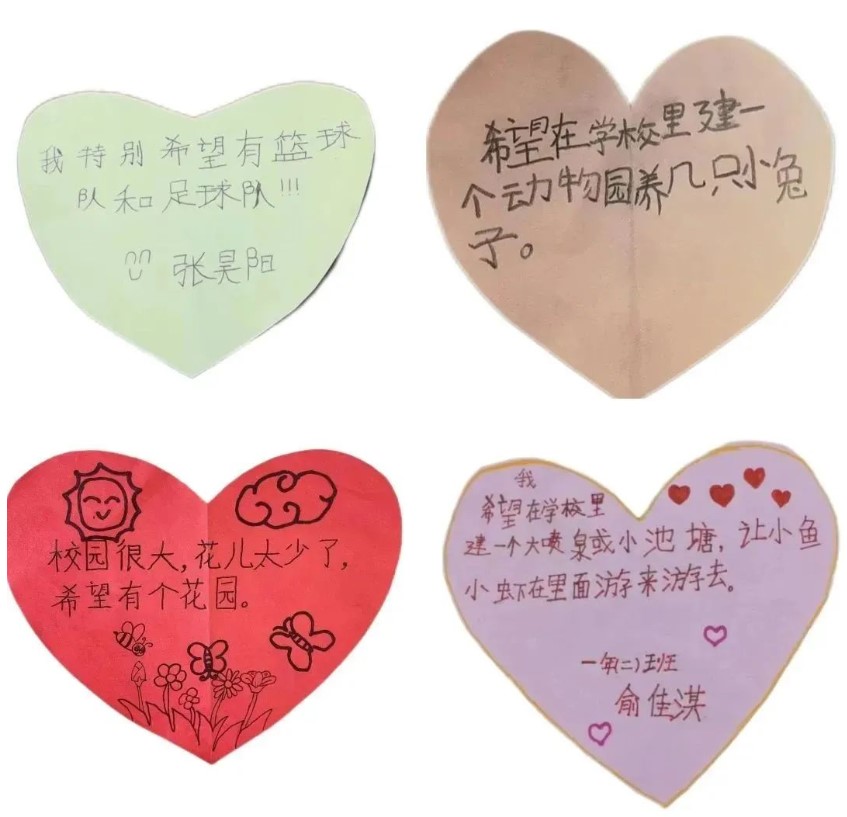 我特别希望有篮球
队和足球队!!!
张昊阳
希望在学校里建一
个动物园养几只小兔
子。
校园很大,花儿太少了,
希望有个花园。
我
希望在学校里
建一个大喷泉或小池塘,让小鱼
小虾在里面游来游去。
一年(二)班
俞佳淇